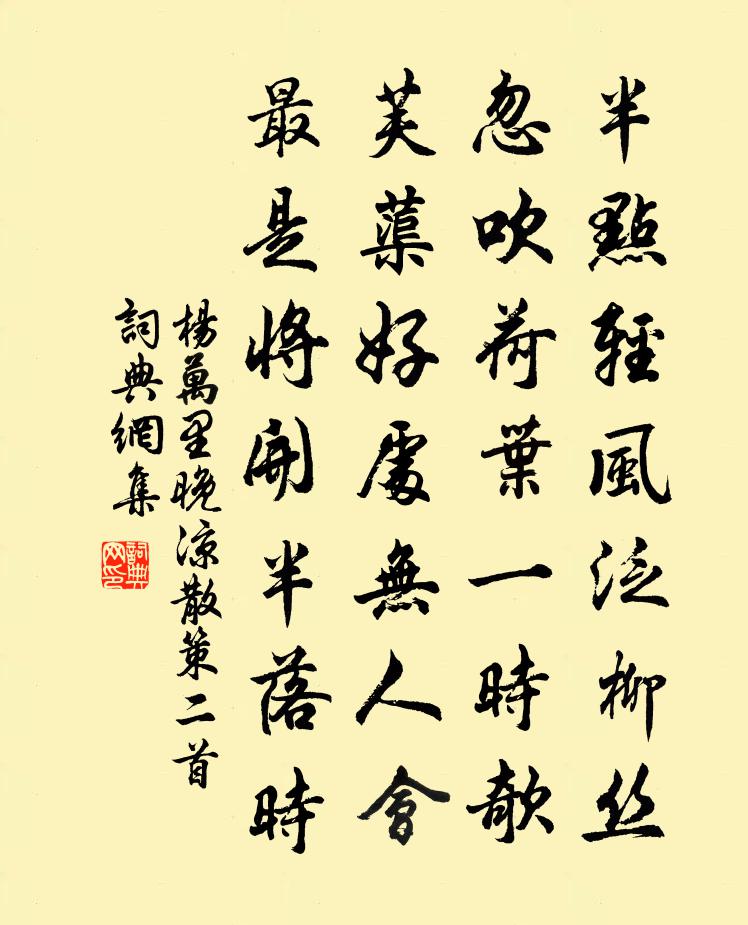 半點輕風泛柳丝
忽吹荷葉一時欹
芙蕖好處無人會
最是将開半落時
楊萬里晚涼散策二首
詞典網集
詞典网印